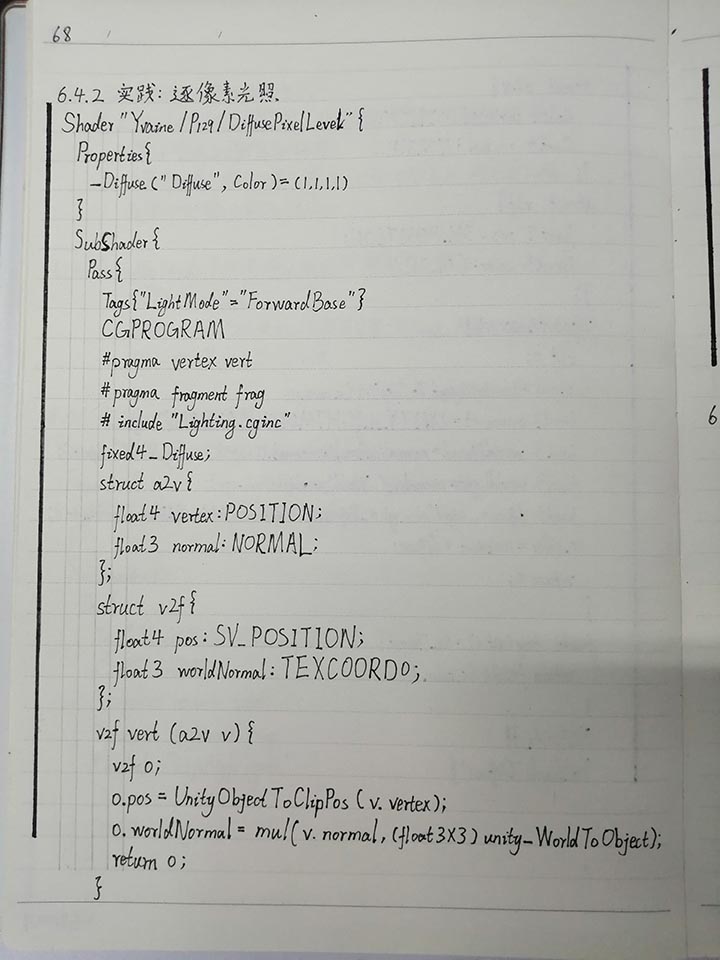 68
6.4.2 实践: 逐像素光照
Shader "Yvaine/P129/DiffusePixelLevel" {
Properties{
_Diffuse ("Diffuse", Color) = (1,1,1,1)
}
SubShader{
Pass{
Tags{"LightMode"="ForwardBase"}
CGPROGRAM
#pragma vertex vert
#pragma fragment frag
# include "Lighting.cginc"
fixed4 _Diffuse;
struct a2v {
float4 vertex: POSITION;
float3 normal: NORMAL;
};
struct v2f {
float4 pos: SV_POSITION;
float3 worldNormal: TEXCOORD0;
};
v2f vert (a2v v) {
v2f o;
o.pos = UnityObjectToClipPos (v.vertex);
o.worldNormal = mul(v.normal, (float3X3) unity_WorldToObject);
return o;
}
6